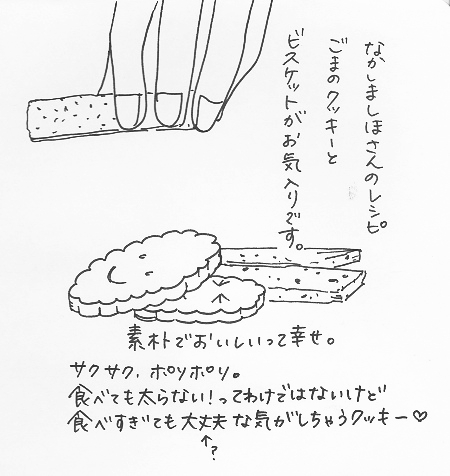 なかしましほさんのレシピ
ごまのクッキーと
ビスケットがお気入りです。
素朴でおいしいって幸せ。
サクサク、ポリポリ。
食べても太らない!ってわけではないけど
食べすぎても大丈夫な気がしちゃうクッキー♡
↑
?